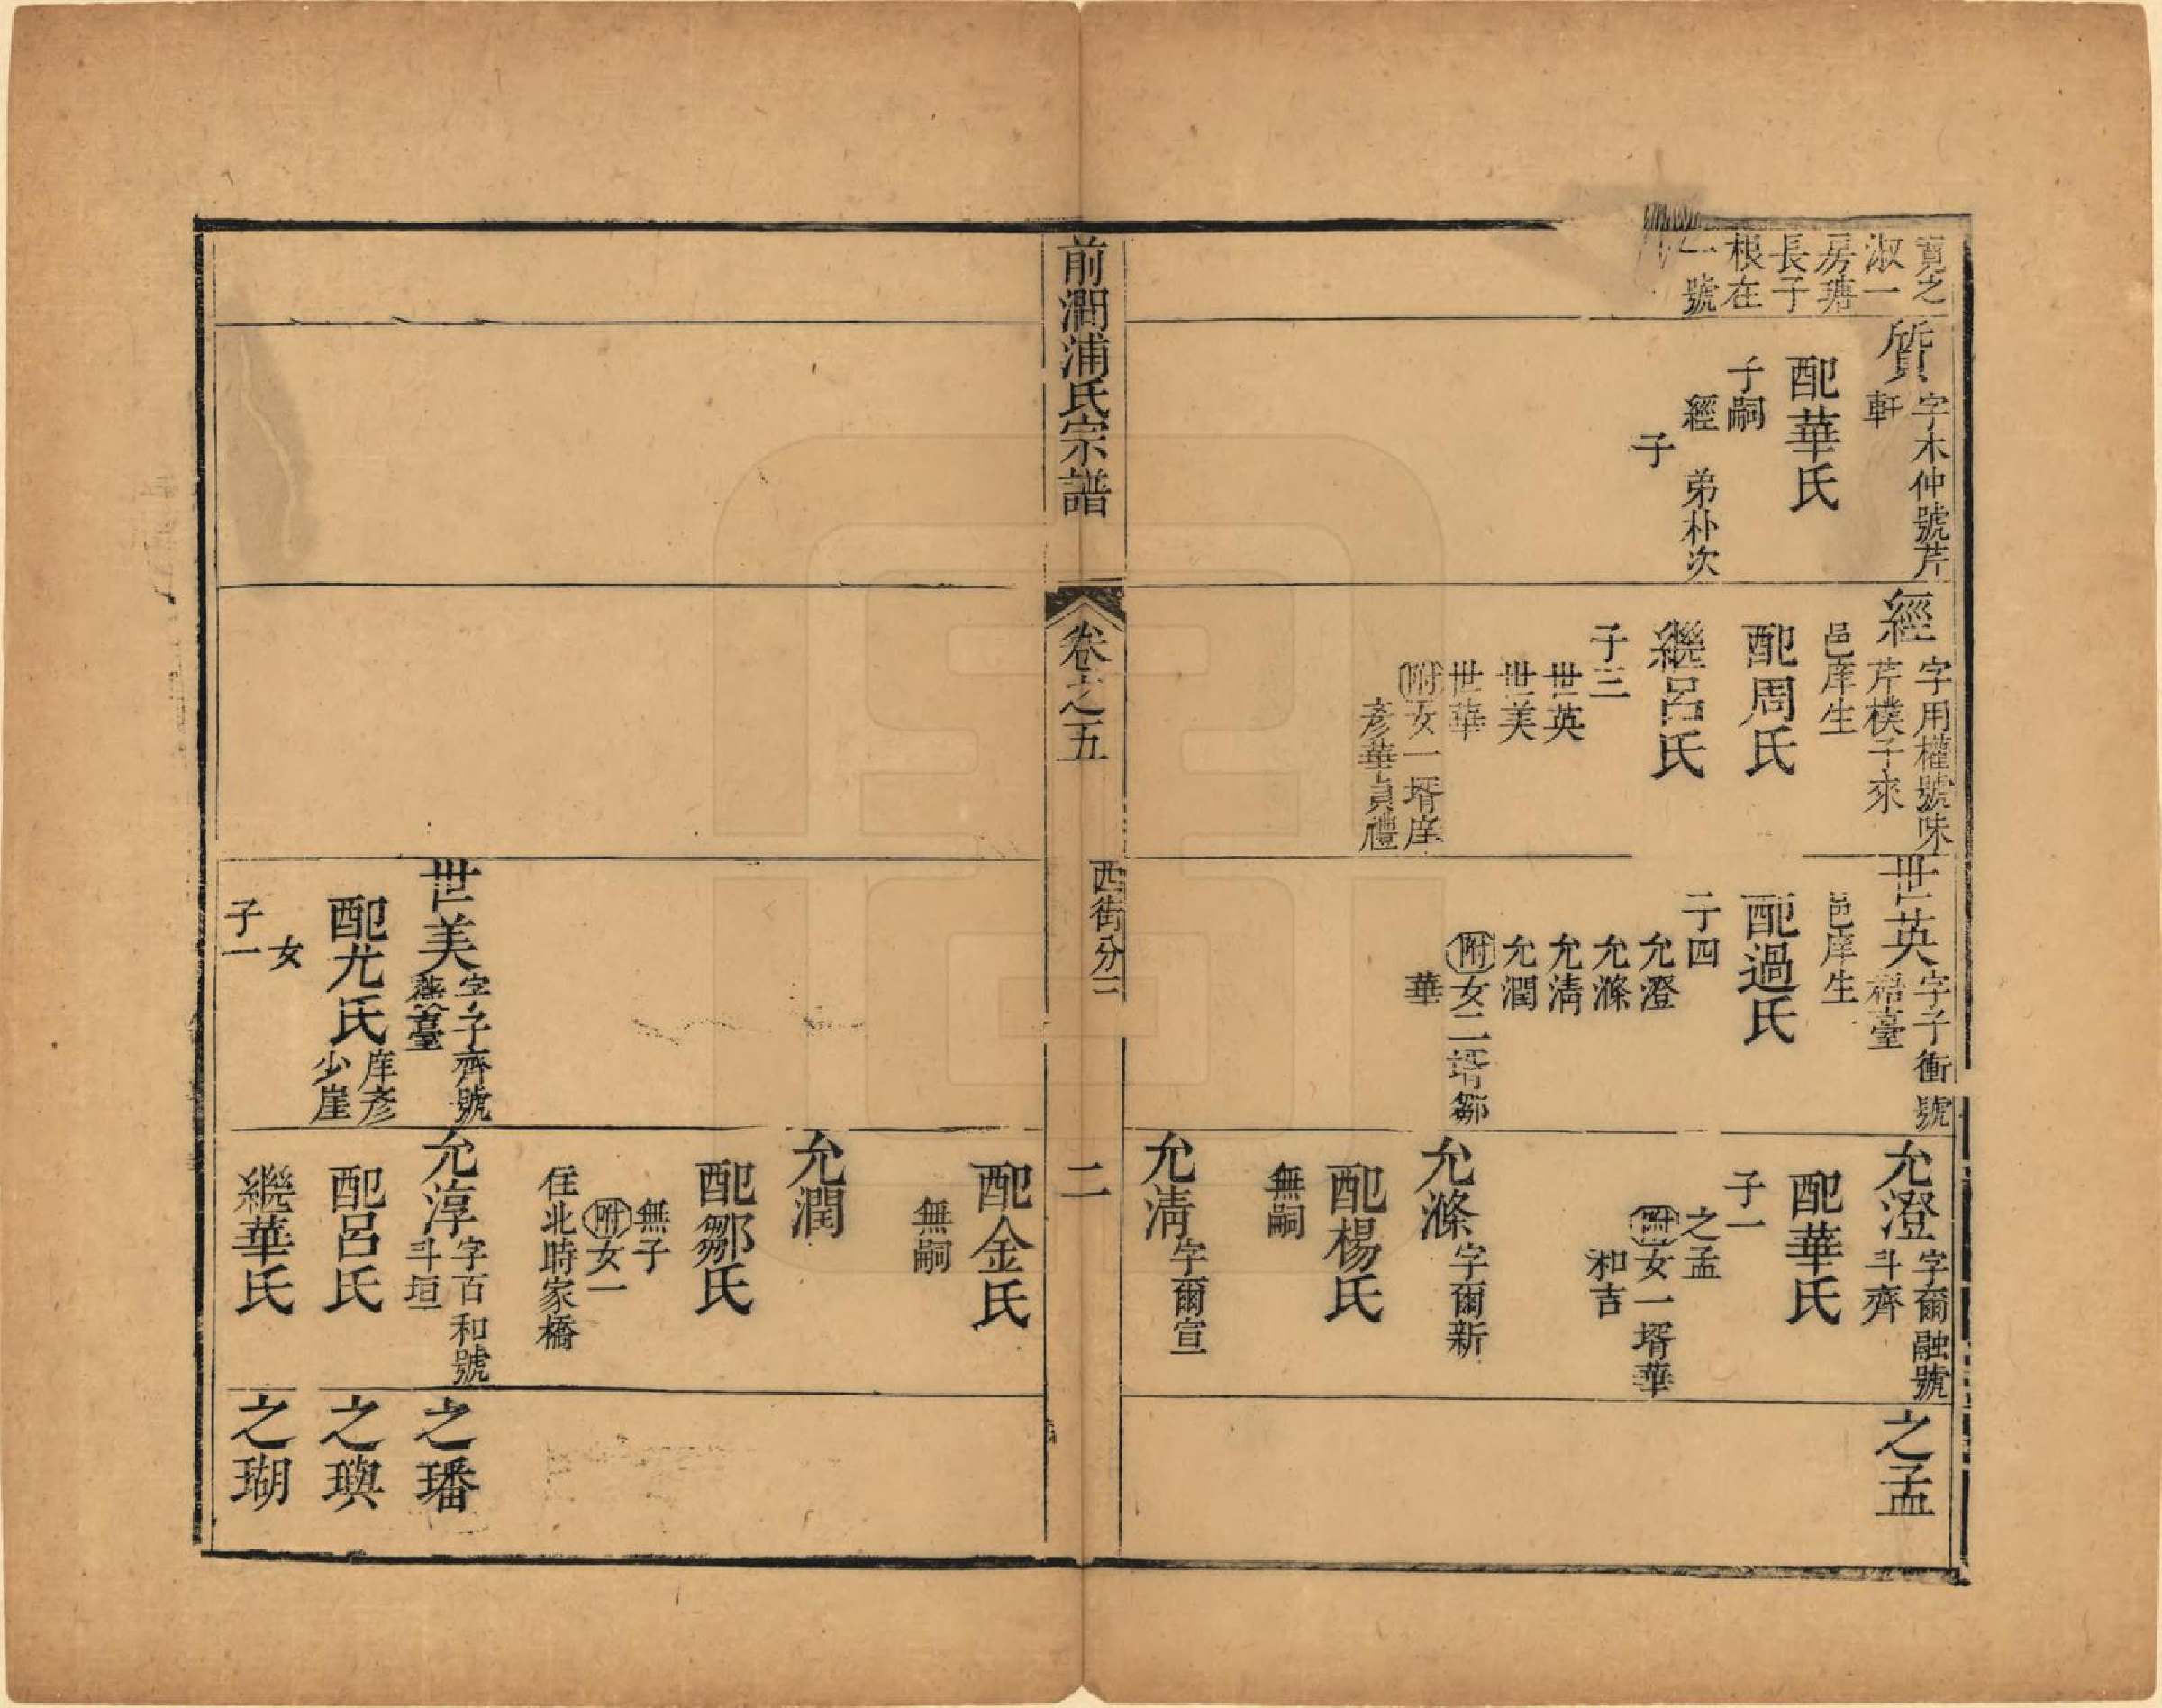 寛之
淑一
房瑭
長子
根在
一號
質 字木仲號芹
軒
配華氏
子嗣
經 弟朴次
子
經 字用權號味
芹樸子來
邑庠生
配周氏
繼呂氏
子三
世英
世美
世華
附女一壻庠
彥華貞禮
世英 字子衝號
梧臺
邑庠生
配過氏
子四
允澄
允滌
允淸
允潤
附女二壻鄒
華
允澄 字爾融號
斗齊
配華氏
子一
之孟
附女一壻華
和吉
允滌 字爾新
配楊氏
無嗣
允淸 字爾宣
之孟
前澗浦氏宗譜
卷之五
西街分三
二
世美 字子齊號
燕臺
配尤氏 庠彥
少崖
女
子一
配金氏
無嗣
允潤
配鄒氏
無子
附女一
住北時家橋
允淳 字百和號
斗垣
配呂氏
繼華氏
之璠
之璵
之瑚